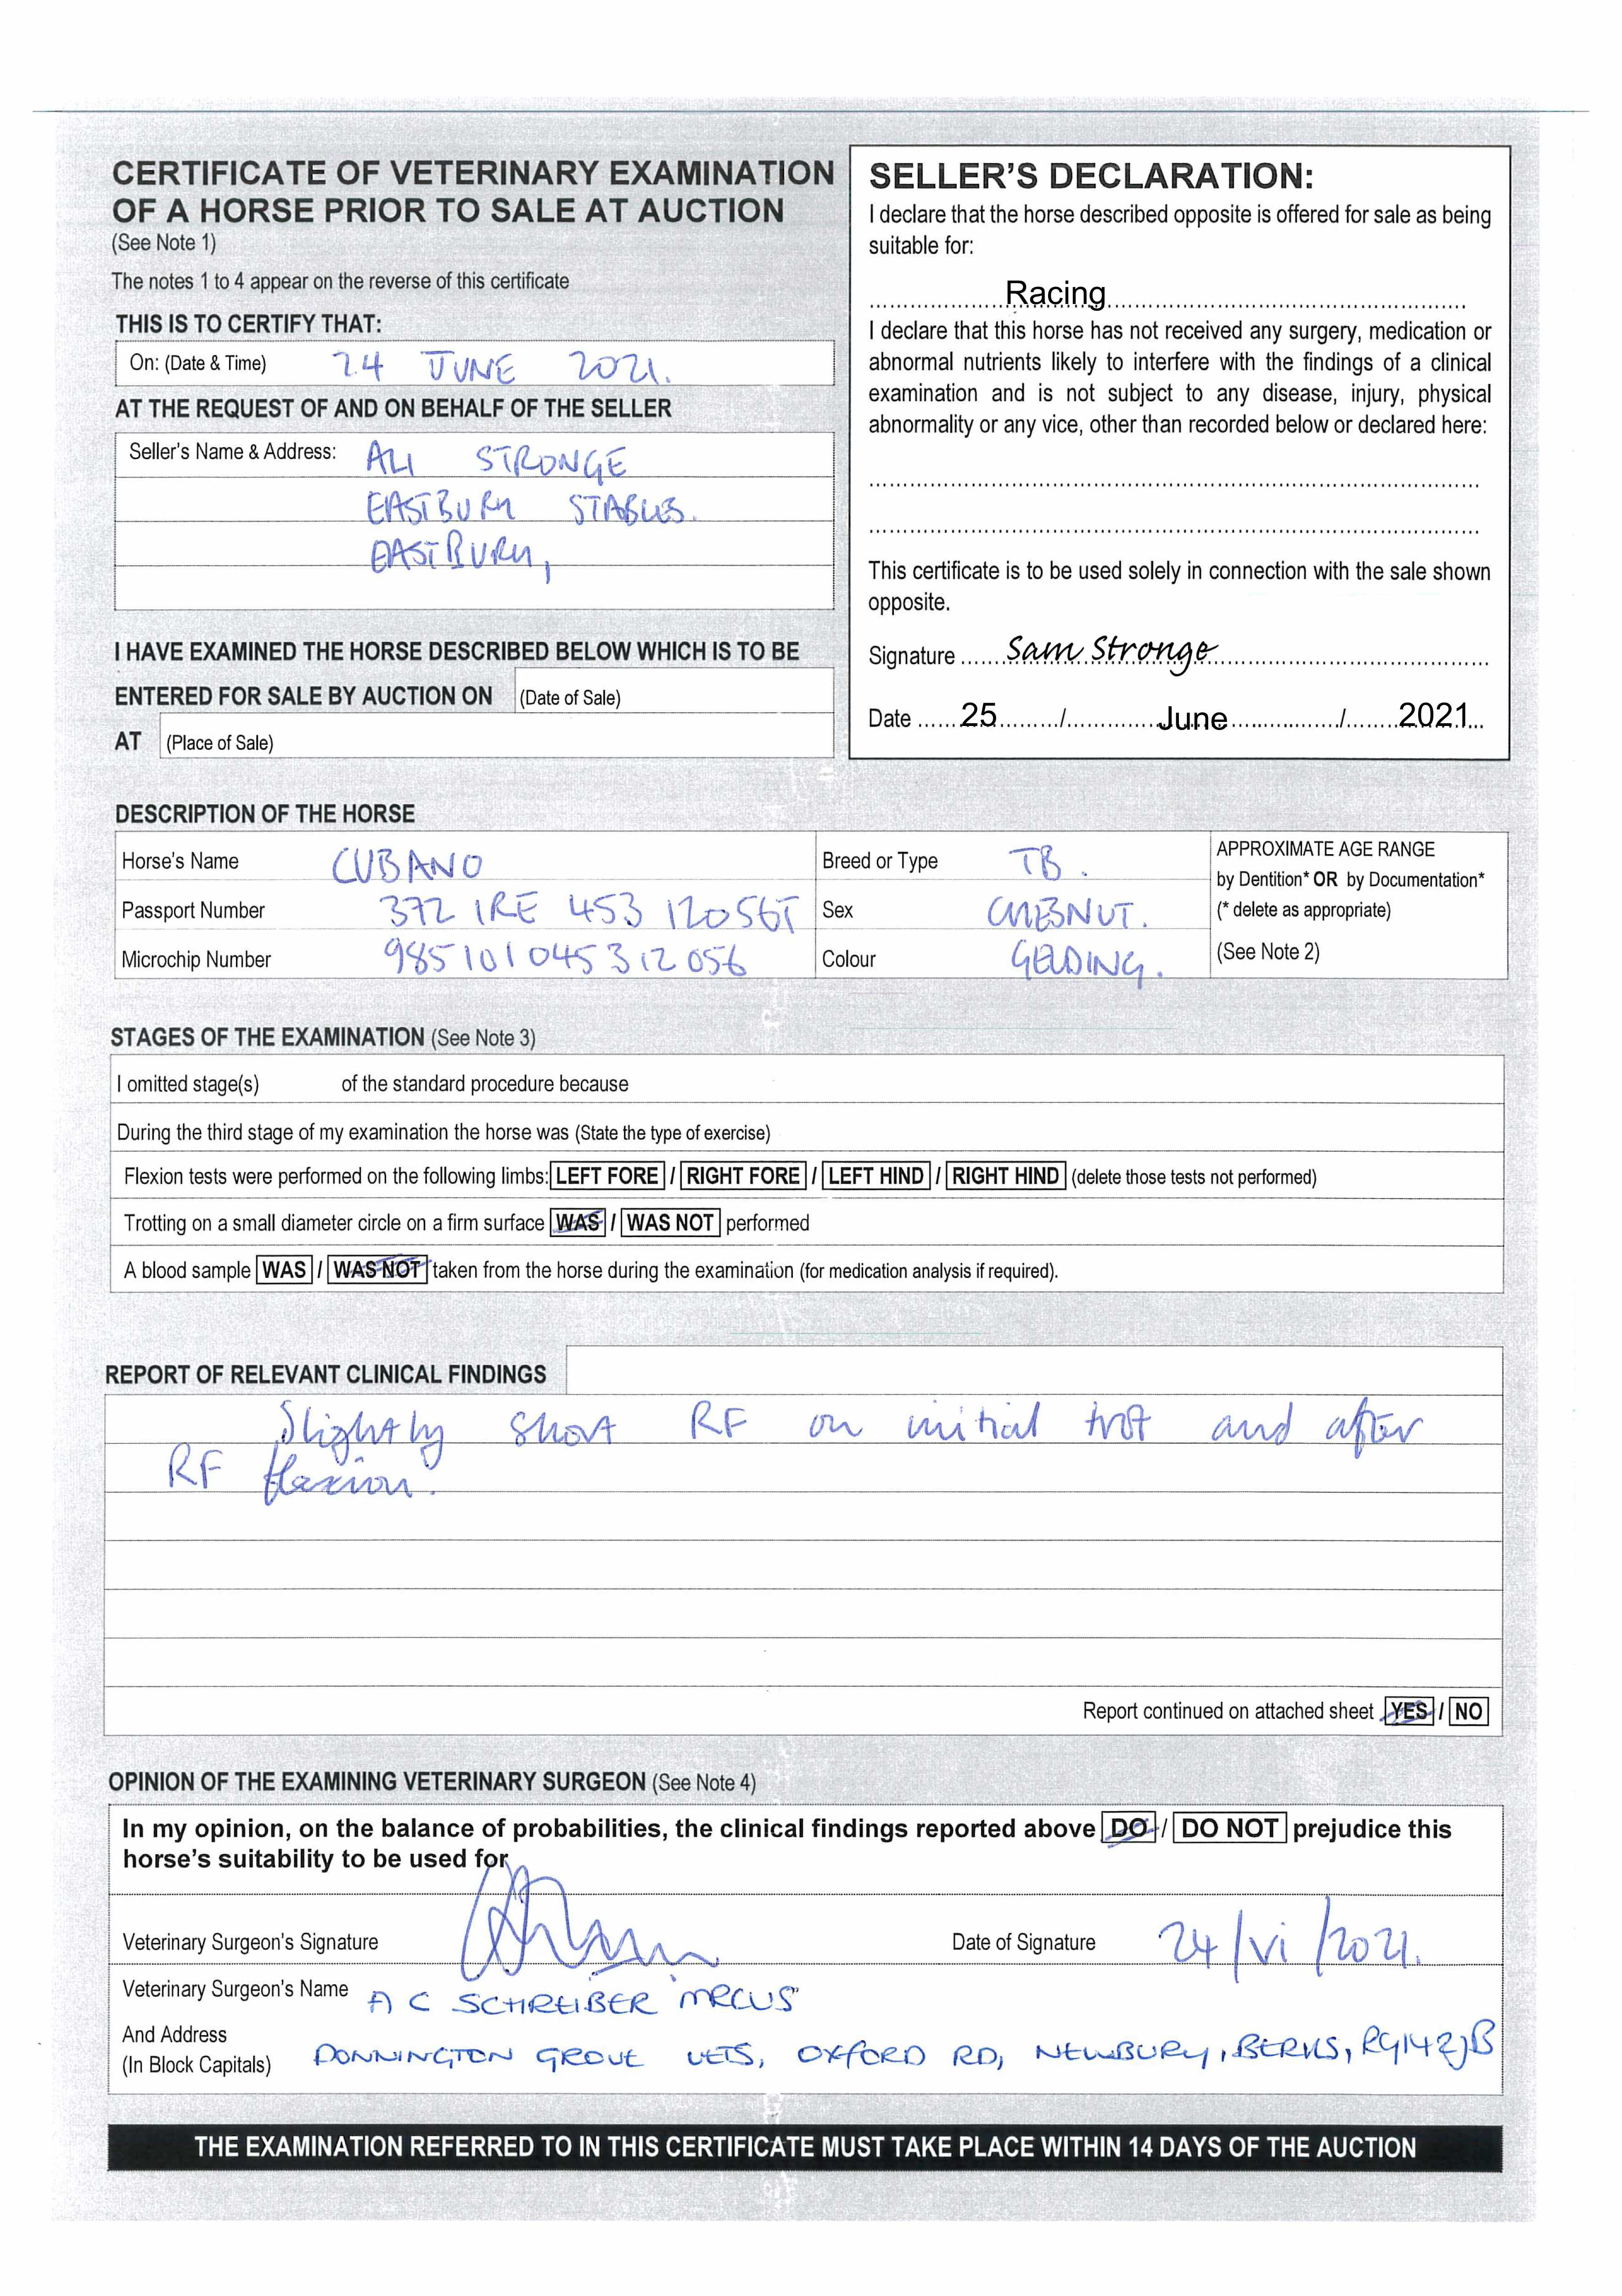 CERTIFICATE OF VETERINARY EXAMINATION
OF A HORSE PRIOR TO SALE AT AUCTION
(See Note 1)
The notes 1 to 4 appear on the reverse of this certificate
THIS IS TO CERTIFY THAT:
On: (Date & Time) 24 JUNE 2021.
AT THE REQUEST OF AND ON BEHALF OF THE SELLER
Seller's Name & Address: ALI STRONGE
EASTBURY STABLES.
EASTBURY,
I HAVE EXAMINED THE HORSE DESCRIBED BELOW WHICH IS TO BE
ENTERED FOR SALE BY AUCTION ON (Date of Sale)
AT (Place of Sale)
SELLER'S DECLARATION:
I declare that the horse described opposite is offered for sale as being
suitable for:
Racing
I declare that this horse has not received any surgery, medication or
abnormal nutrients likely to interfere with the findings of a clinical
examination and is not subject to any disease, injury, physical
abnormality or any vice, other than recorded below or declared here:
This certificate is to be used solely in connection with the sale shown
opposite.
Signature Sam Stronge
Date 25 / June / 2021
DESCRIPTION OF THE HORSE
Horse's Name CUBANO Breed or Type TB.
Passport Number 372 IRE 453 12056T Sex CHESNUT.
Microchip Number 985101045312056 Colour GELDING.
APPROXIMATE AGE RANGE
by Dentition* OR by Documentation*
(* delete as appropriate)
(See Note 2)
STAGES OF THE EXAMINATION (See Note 3)
I omitted stage(s) of the standard procedure because
During the third stage of my examination the horse was (State the type of exercise)
Flexion tests were performed on the following limbs: LEFT FORE / RIGHT FORE / LEFT HIND / RIGHT HIND (delete those tests not performed)
Trotting on a small diameter circle on a firm surface WAS / WAS NOT performed
A blood sample WAS / WAS NOT taken from the horse during the examination (for medication analysis if required).
REPORT OF RELEVANT CLINICAL FINDINGS
Slightly short RF on initial trot and after
RF flexion.
Report continued on attached sheet YES / NO
OPINION OF THE EXAMINING VETERINARY SURGEON (See Note 4)
In my opinion, on the balance of probabilities, the clinical findings reported above DO / DO NOT prejudice this
horse's suitability to be used for
Veterinary Surgeon's Signature Date of Signature 24/vi/2021.
Veterinary Surgeon's Name A C SCHREIBER MRCVS
And Address
(In Block Capitals) DONNINGTON GROVE VETS, OXFORD RD, NEWBURY, BERKS, RG14 2JB
THE EXAMINATION REFERRED TO IN THIS CERTIFICATE MUST TAKE PLACE WITHIN 14 DAYS OF THE AUCTION